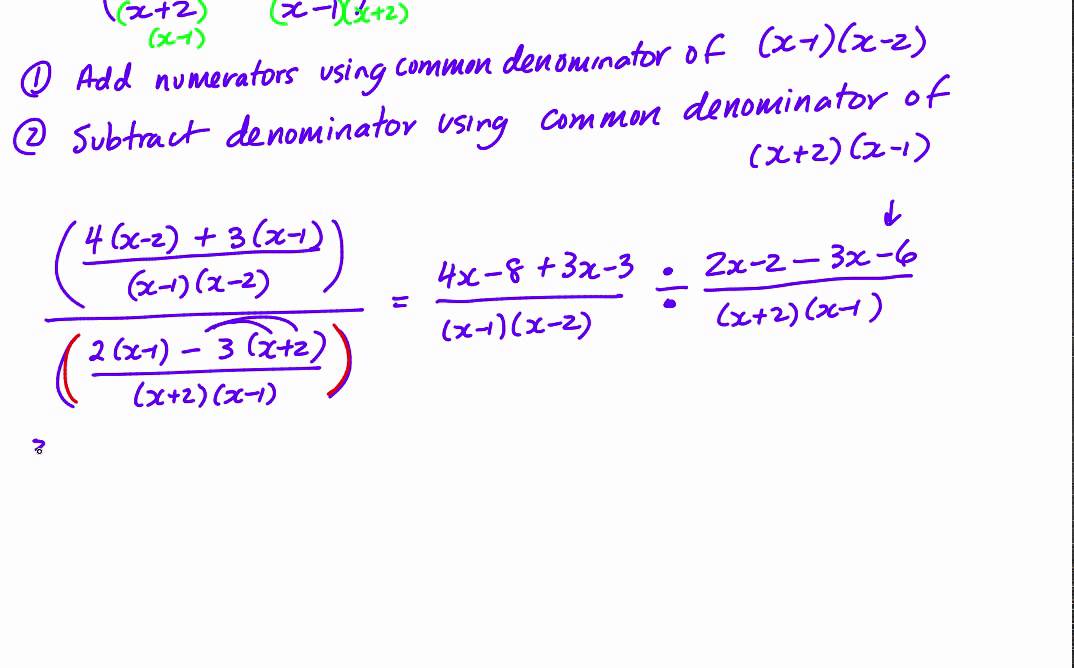 (x+2) (x-1)(x+2)
(x-1)
① Add numerators using common denominator of (x-1)(x-2)
② Subtract denominator using common denominator of
(x+2)(x-1)
(4(x-2) + 3(x-1) / (x-1)(x-2)) / (2(x-1) - 3(x+2) / (x+2)(x-1)) = 4x-8+3x-3 / (x-1)(x-2) ÷ 2x-2-3x-6 / (x+2)(x-1)